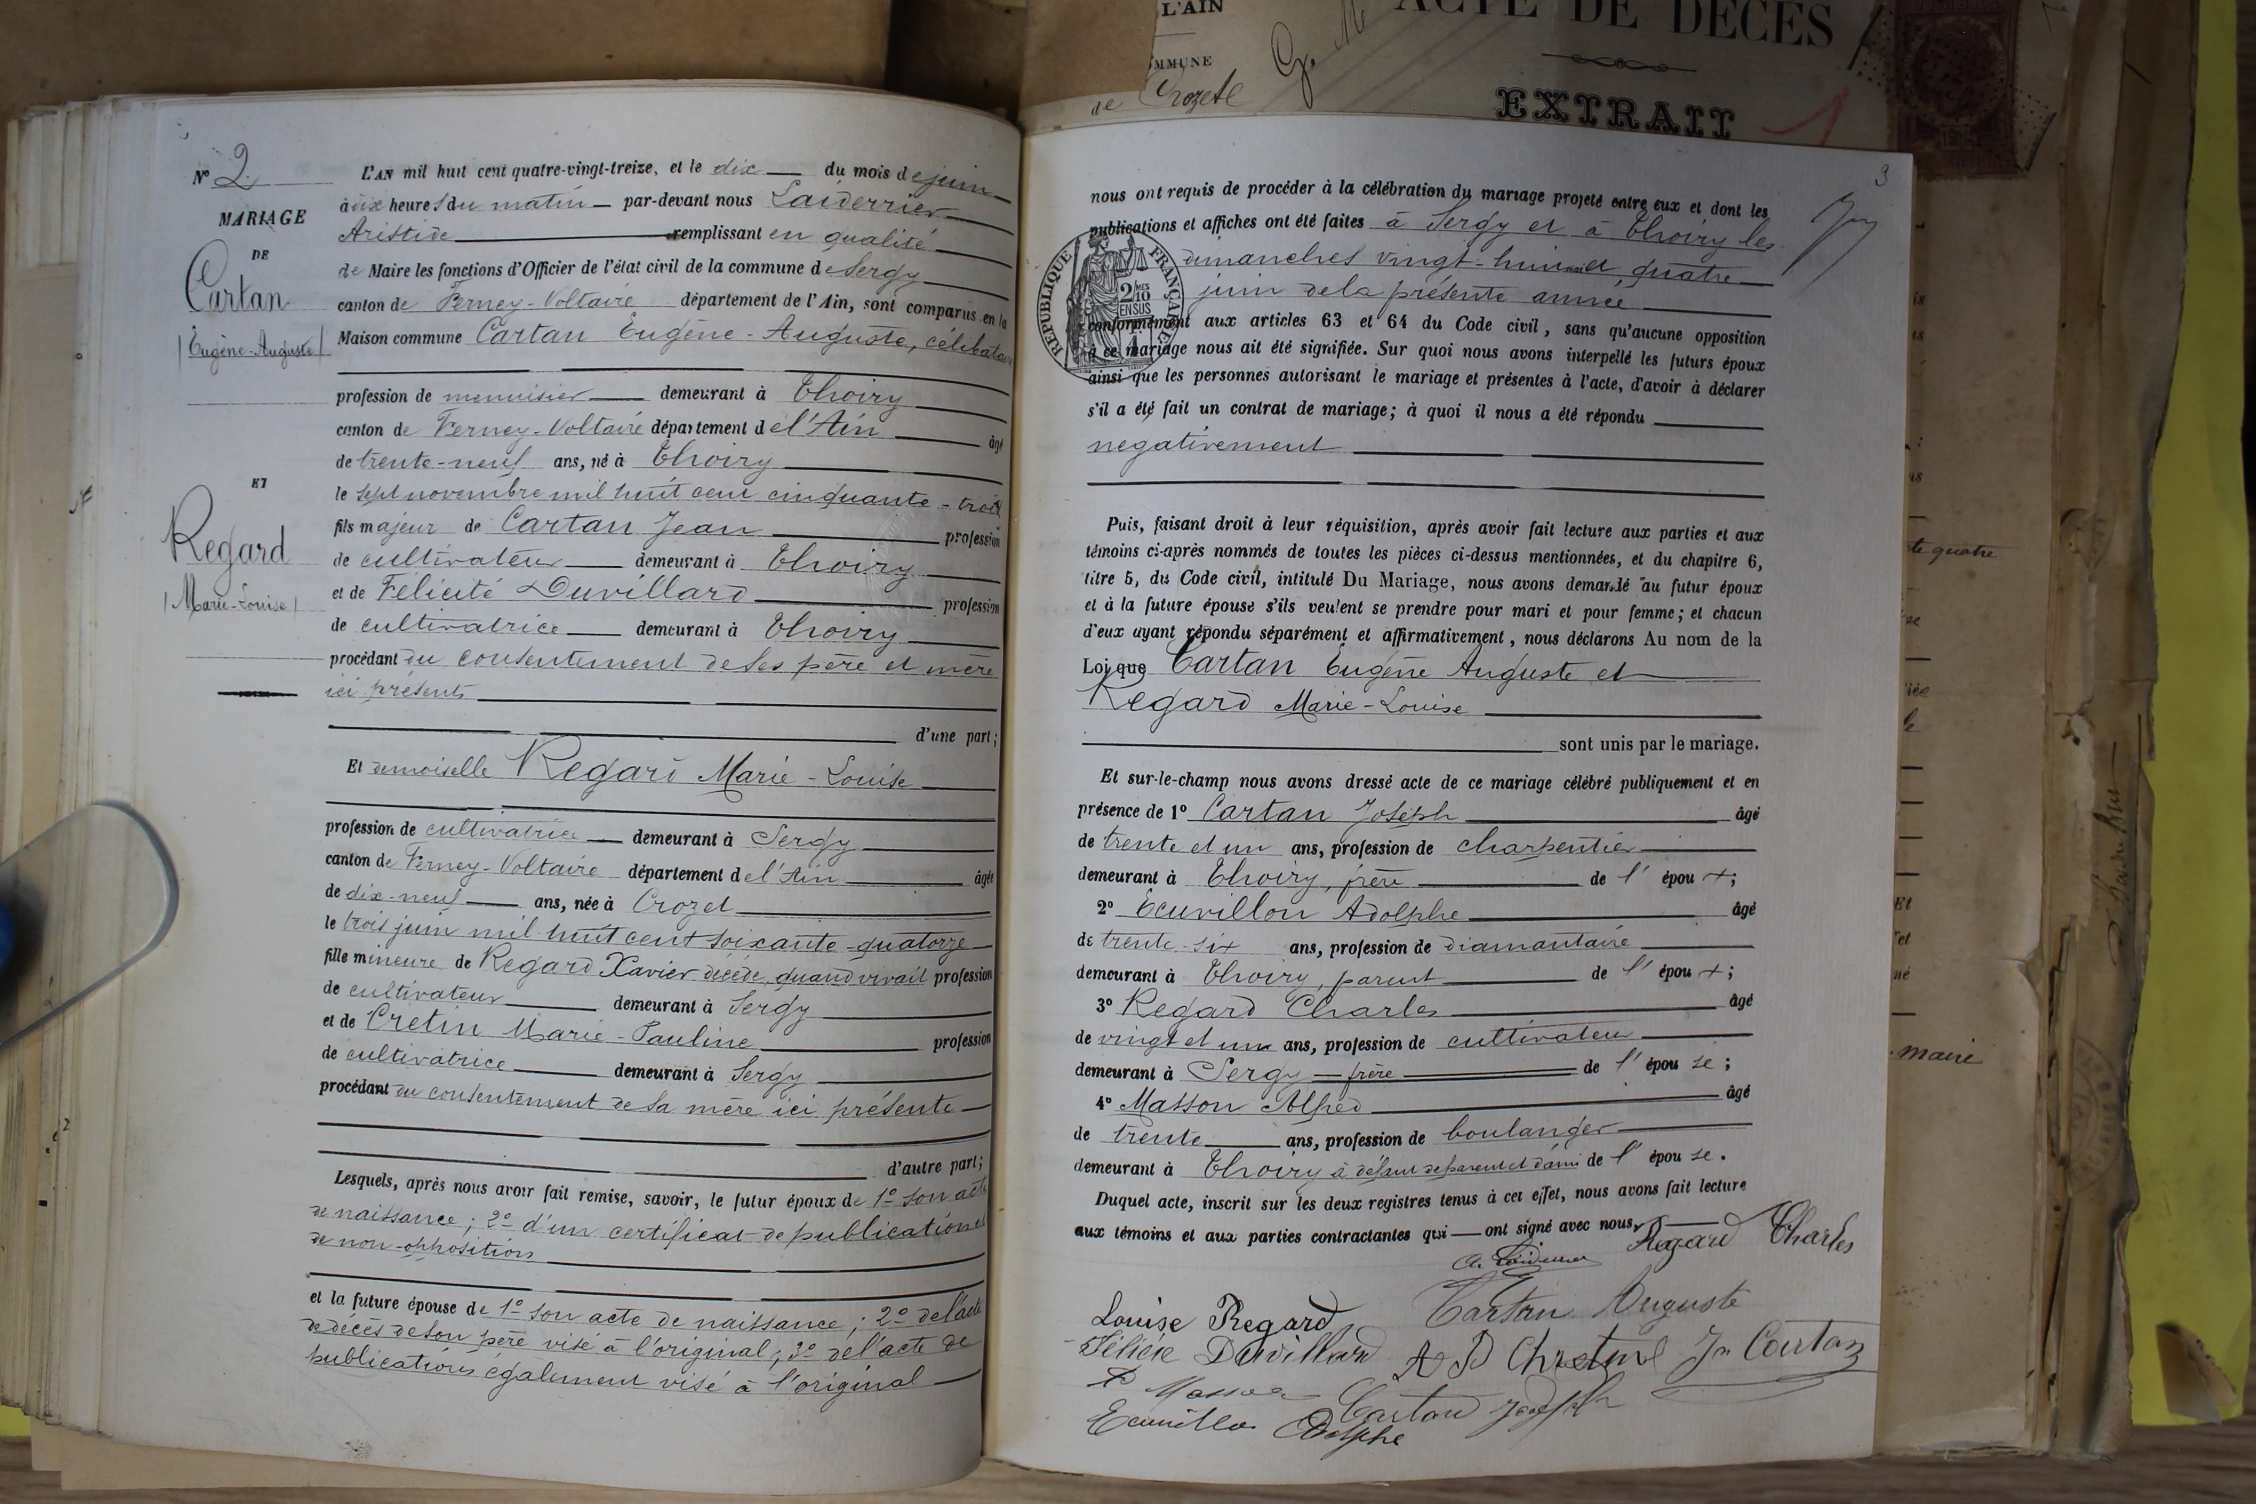 L'AIN
ACTE DE DÉCÈS
MMUNE
de Crozet
EXTRAIT
Nº 2
MARIAGE
DE
Cartan
Eugène-Auguste
ET
Regard
Marie-Louise
L'AN mil huit cent quatre-vingt-treize, et le dix du mois de juin
à dix heures du matin par-devant nous Laiderrier
Aristide remplissant en qualité
de Maire les fonctions d'Officier de l'état civil de la commune de Sergy
canton de Ferney-Voltaire département de l'Ain, sont comparus en la
Maison commune Cartan Eugène-Auguste, célibataire
profession de menuisier demeurant à Thoiry
canton de Ferney-Voltaire département de l'Ain âgé
de trente-neuf ans, né à Thoiry
le sept novembre mil huit cent cinquante-trois
fils majeur de Cartan Jean profession
de cultivateur demeurant à Thoiry
et de Félicité Duvillard profession
de cultivatrice demeurant à Thoiry
procédant du consentement de ses père et mère
ici présents
d'une part;
Et demoiselle Regard Marie-Louise
profession de cultivatrice demeurant à Sergy
canton de Ferney-Voltaire département de l'Ain âgée
de dix-neuf ans, née à Crozet
le trois juin mil huit cent soixante-quatorze
fille mineure de Regard Xavier décédé, quand vivait profession
de cultivateur demeurant à Sergy
et de Cretin Marie-Pauline profession
de cultivatrice demeurant à Sergy
procédant du consentement de sa mère ici présente
d'autre part;
Lesquels, après nous avoir fait remise, savoir, le futur époux de 1º son acte
de naissance; 2º d'un certificat de publication et
de non-opposition
et la future épouse de 1º son acte de naissance; 2º de l'acte
de décès de son père visé à l'original; 3º de l'acte de
publications également visé à l'original
3
nous ont requis de procéder à la célébration du mariage projeté entre eux et dont les
publications et affiches ont été faites à Sergy et à Thoiry les
dimanches vingt-huit mai et quatre
juin de la présente année
RÉPUBLIQUE FRANÇAISE
2/10
EN SUS
conformément aux articles 63 et 64 du Code civil, sans qu'aucune opposition
à ce mariage nous ait été signifiée. Sur quoi nous avons interpellé les futurs époux
ainsi que les personnes autorisant le mariage et présentes à l'acte, d'avoir à déclarer
s'il a été fait un contrat de mariage; à quoi il nous a été répondu
negativement
Puis, faisant droit à leur réquisition, après avoir fait lecture aux parties et aux
témoins ci-après nommés de toutes les pièces ci-dessus mentionnées, et du chapitre 6,
titre 5, du Code civil, intitulé Du Mariage, nous avons demandé au futur époux
et à la future épouse s'ils veulent se prendre pour mari et pour femme; et chacun
d'eux ayant répondu séparément et affirmativement, nous déclarons Au nom de la
Loi que Cartan Eugène Auguste et
Regard Marie-Louise
sont unis par le mariage.
Et sur-le-champ nous avons dressé acte de ce mariage célébré publiquement et en
présence de 1º Cartan Joseph âgé
de trente et un ans, profession de charpentier
demeurant à Thoiry, frère de l'épou x;
2º Ecuvillon Adolphe âgé
de trente-six ans, profession de diamantaire
demeurant à Thoiry, parent de l'épou x;
3º Regard Charles âgé
de vingt et un ans, profession de cultivateur
demeurant à Sergy frère de l'épou se;
4º Masson Alfred âgé
de trente ans, profession de boulanger
demeurant à Thoiry à défaut de parent et d'ami de l'épou se.
Duquel acte, inscrit sur les deux registres tenus à cet effet, nous avons fait lecture
aux témoins et aux parties contractantes qui ont signé avec nous.
A. Laiderrier Regard Charles
Louise Regard Cartan Auguste
Félicie Duvillard Jn Cartan
Masson Cartan Joseph
Ecuvillon Adolphe
te quatre
maire